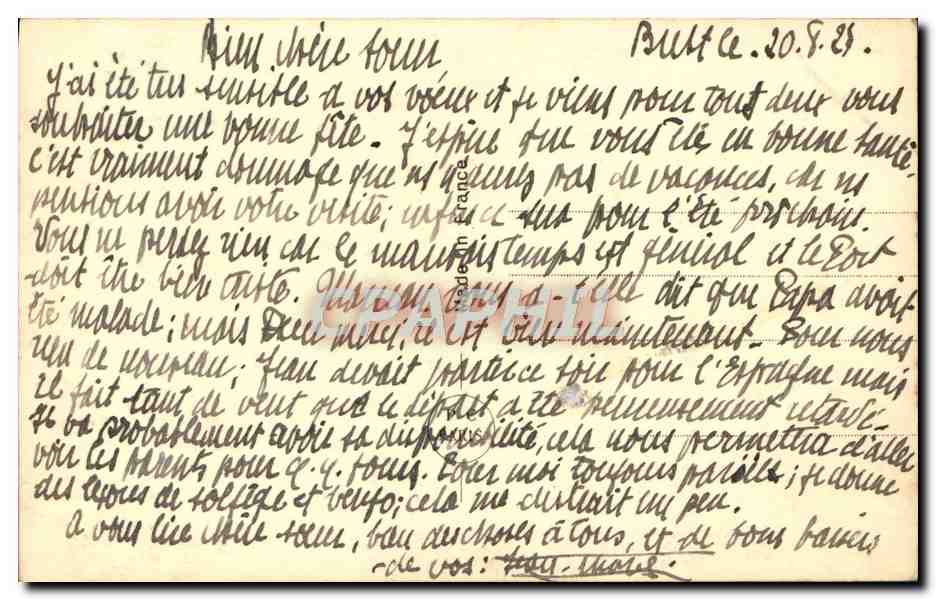 Bien chère sœur
Brest le. 20.8.25.
J'ai été très sensible à vos vœux et je viens pour tous deux vous
souhaiter une bonne fête. J'espère que vous êtes en bonne santé.
c'est vraiment dommage que ns n'ayez pas de vacances, car ns
pensions avoir votre visite; enfin ce sera pour l'été prochain.
Vous ne perdez rien car le mauvais temps est général et le Port
doit être bien triste. Maman vous a-t-elle dit que Papa avait
été malade; mais Dieu merci, c'est bien maintenant. Pour nous
rien de nouveau; Jean devait partir ce soir pour l'Espagne mais
il fait tant de vent que le départ a été heureusement retardé.
Il va probablement avoir sa disponibilité, cela nous permettra d'aller
voir les parents pour q.q. jours. Pour moi toujours pareille; je donne
des leçons de solfège et cela me distrait un peu.
A vous lire chère sœur, bien des choses à tous, et de bons baisers
de vos:
Made in France
PARIS
CPARPHIL